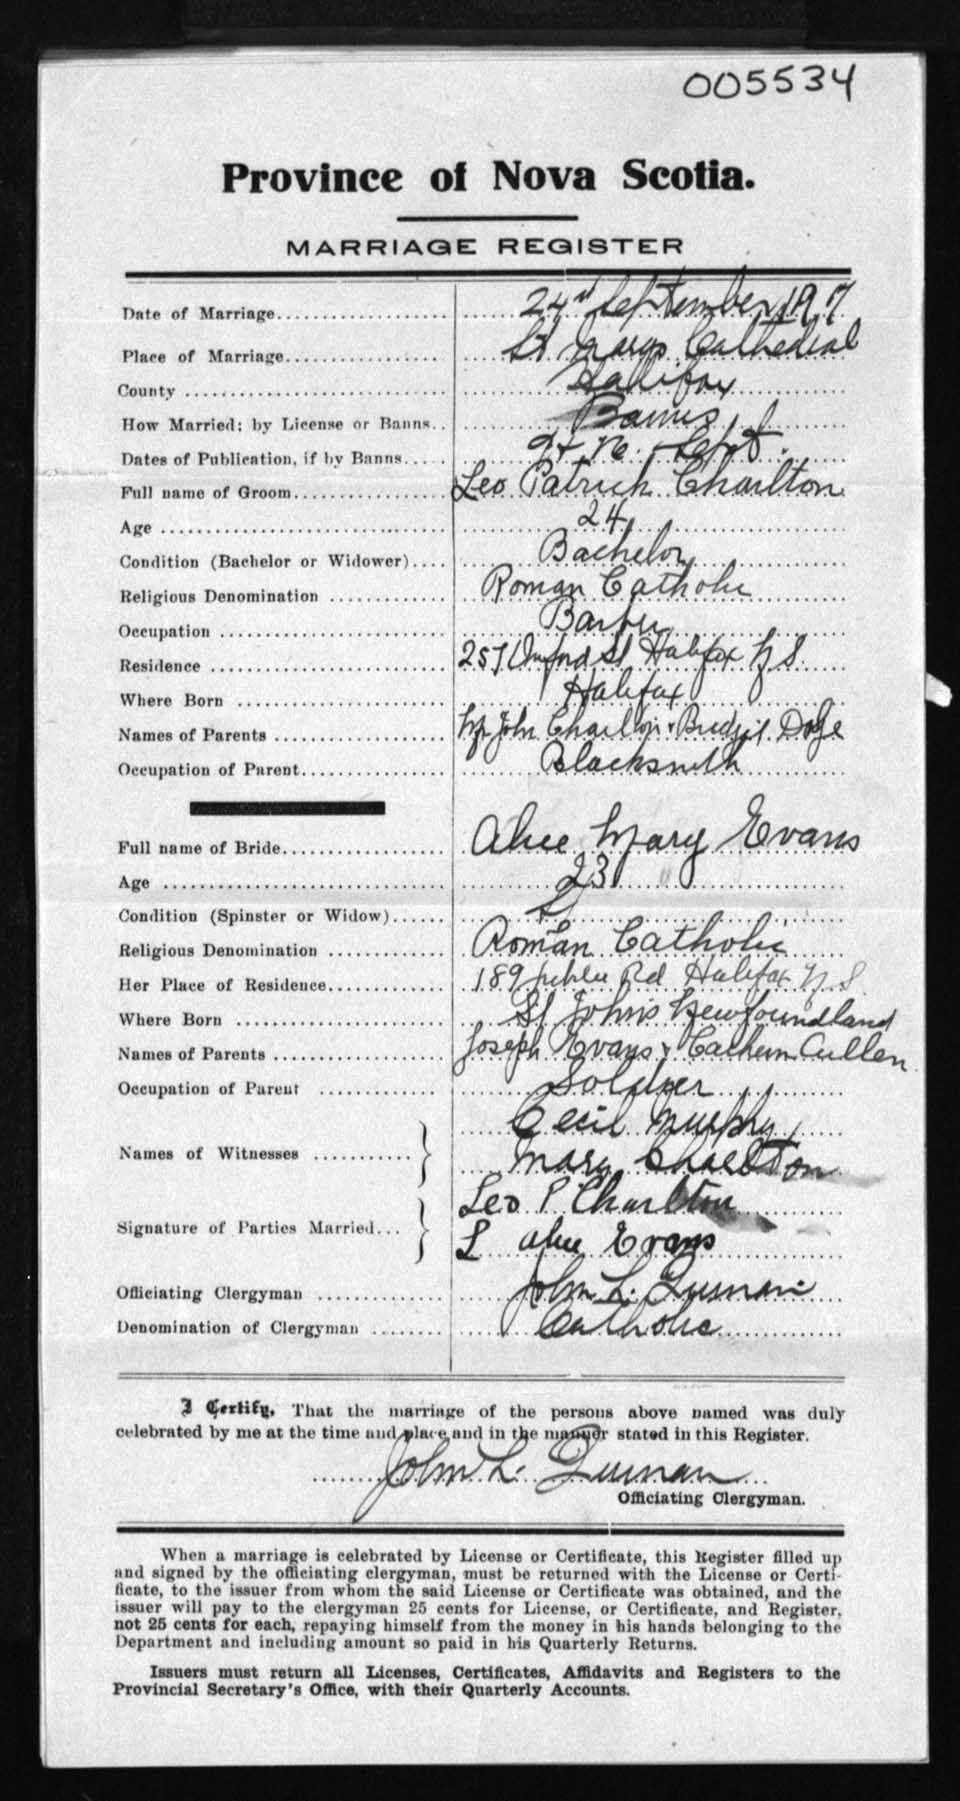 005534
Province of Nova Scotia.
MARRIAGE REGISTER
Date of Marriage 24 September 1917
Place of Marriage St Marys Cathedral
County Halifax
How Married; by License or Banns.. Banns
Dates of Publication, if by Banns 9 + 16. Sept.
Full name of Groom Leo Patrick Charlton
Age 24
Condition (Bachelor or Widower) Bachelor
Religious Denomination Roman Catholic
Occupation Barber
Residence Oxford St Halifax N S.
Where Born Halifax
Names of Parents John Charlton +
Occupation of Parent Blacksmith
Full name of Bride Alice Mary Evans
Age 23
Condition (Spinster or Widow) S
Religious Denomination Roman Catholic
Her Place of Residence 189 Rd Halifax N S.
Where Born St Johns Newfoundland
Names of Parents Joseph Evans + Cullen
Occupation of Parent Soldier
Names of Witnesses Cecil Murphy
Mary Charlton
Signature of Parties Married Leo P Charlton
Alice Evans
Officiating Clergyman John L. Quinan
Denomination of Clergyman Catholic
I Certify, That the marriage of the persons above named was duly
celebrated by me at the time and place and in the manner stated in this Register.
John L. Quinan
Officiating Clergyman.
When a marriage is celebrated by License or Certificate, this Register filled up
and signed by the officiating clergyman, must be returned with the License or Certi-
ficate, to the issuer from whom the said License or Certificate was obtained, and the
issuer will pay to the clergyman 25 cents for License, or Certificate, and Register,
not 25 cents for each, repaying himself from the money in his hands belonging to the
Department and including amount so paid in his Quarterly Returns.
Issuers must return all Licenses, Certificates, Affidavits and Registers to the
Provincial Secretary's Office, with their Quarterly Accounts.